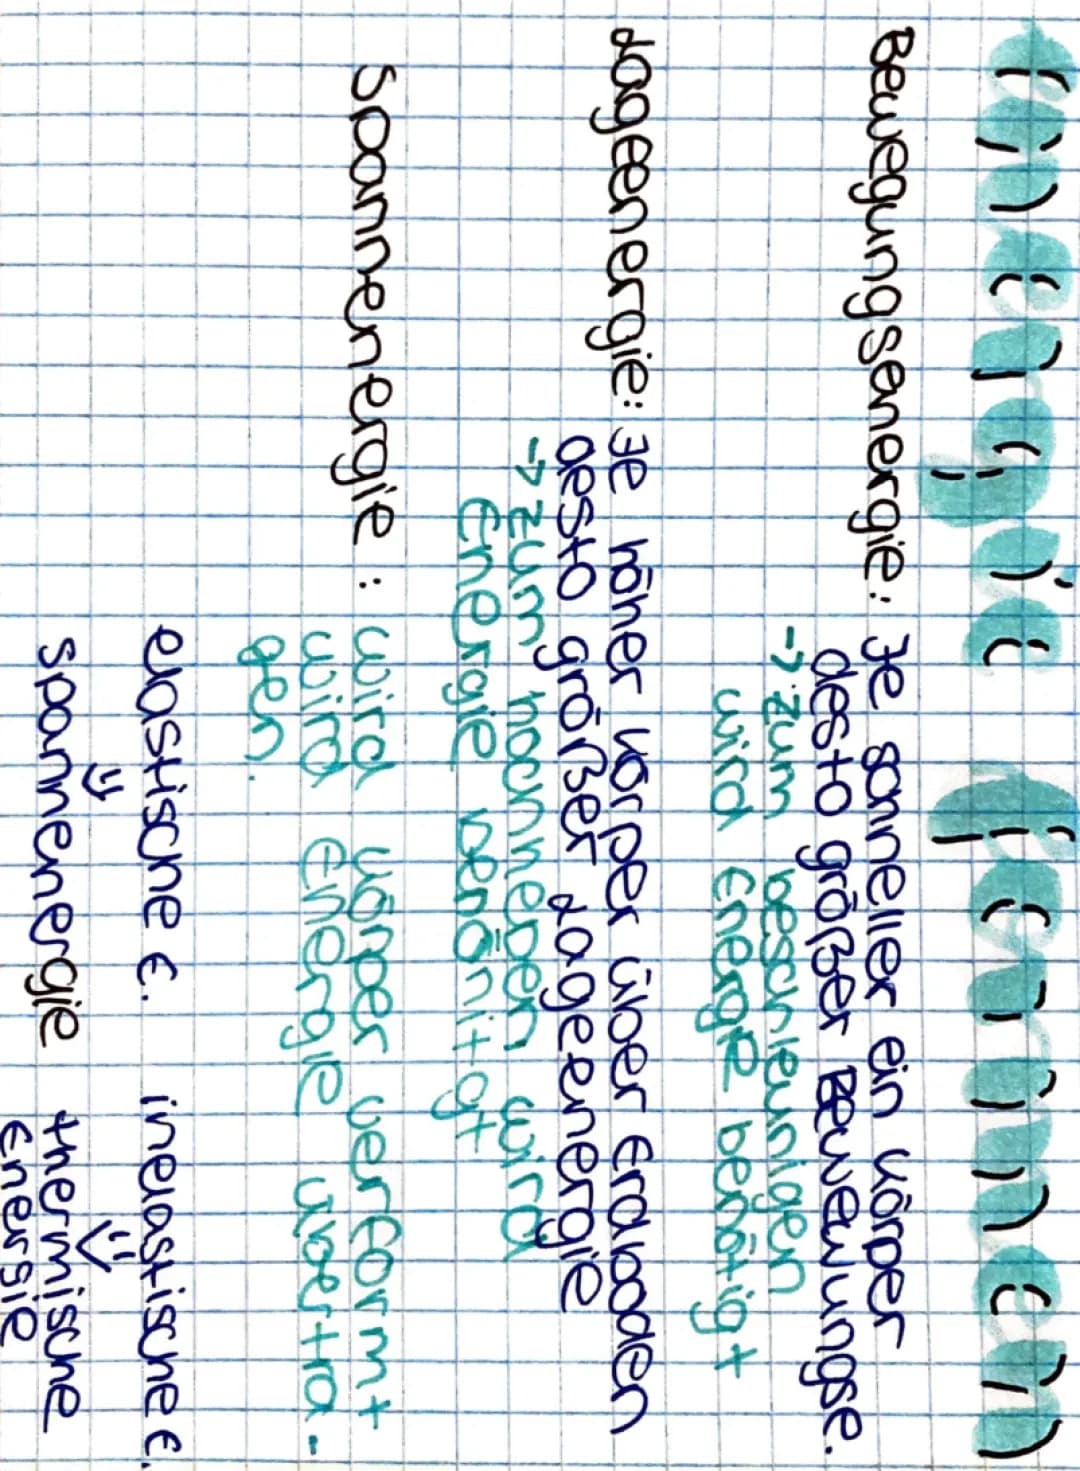 Energieformen
Bewegungsenergie: Je schneller ein Körper
desto größer Bewewungse.
-> zum beschleunigen
wird Energie benötigt
Lageenergie: Je höher Körper über Erdboden
desto größer Lageenergie
-> zum hochheben wird
Energie benönitgt
Spannenenergie: wird Körper verformt
wird Energie übertra-
gen.
elastische E. inelastische E.
Spannenergie thermische
Energie